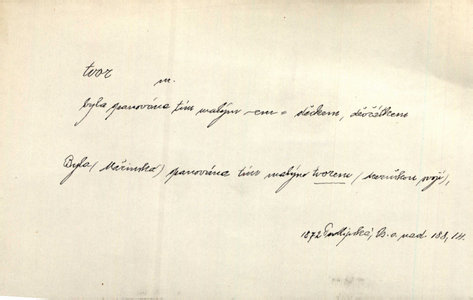 tvor m.
byla panována tím malým -em = děckem, děvčátkem
Byla (Mařinka) panována tím malým tvorem (dceruškou, svojí),
1872 Podlipská, B. a. nad. 188, 14.